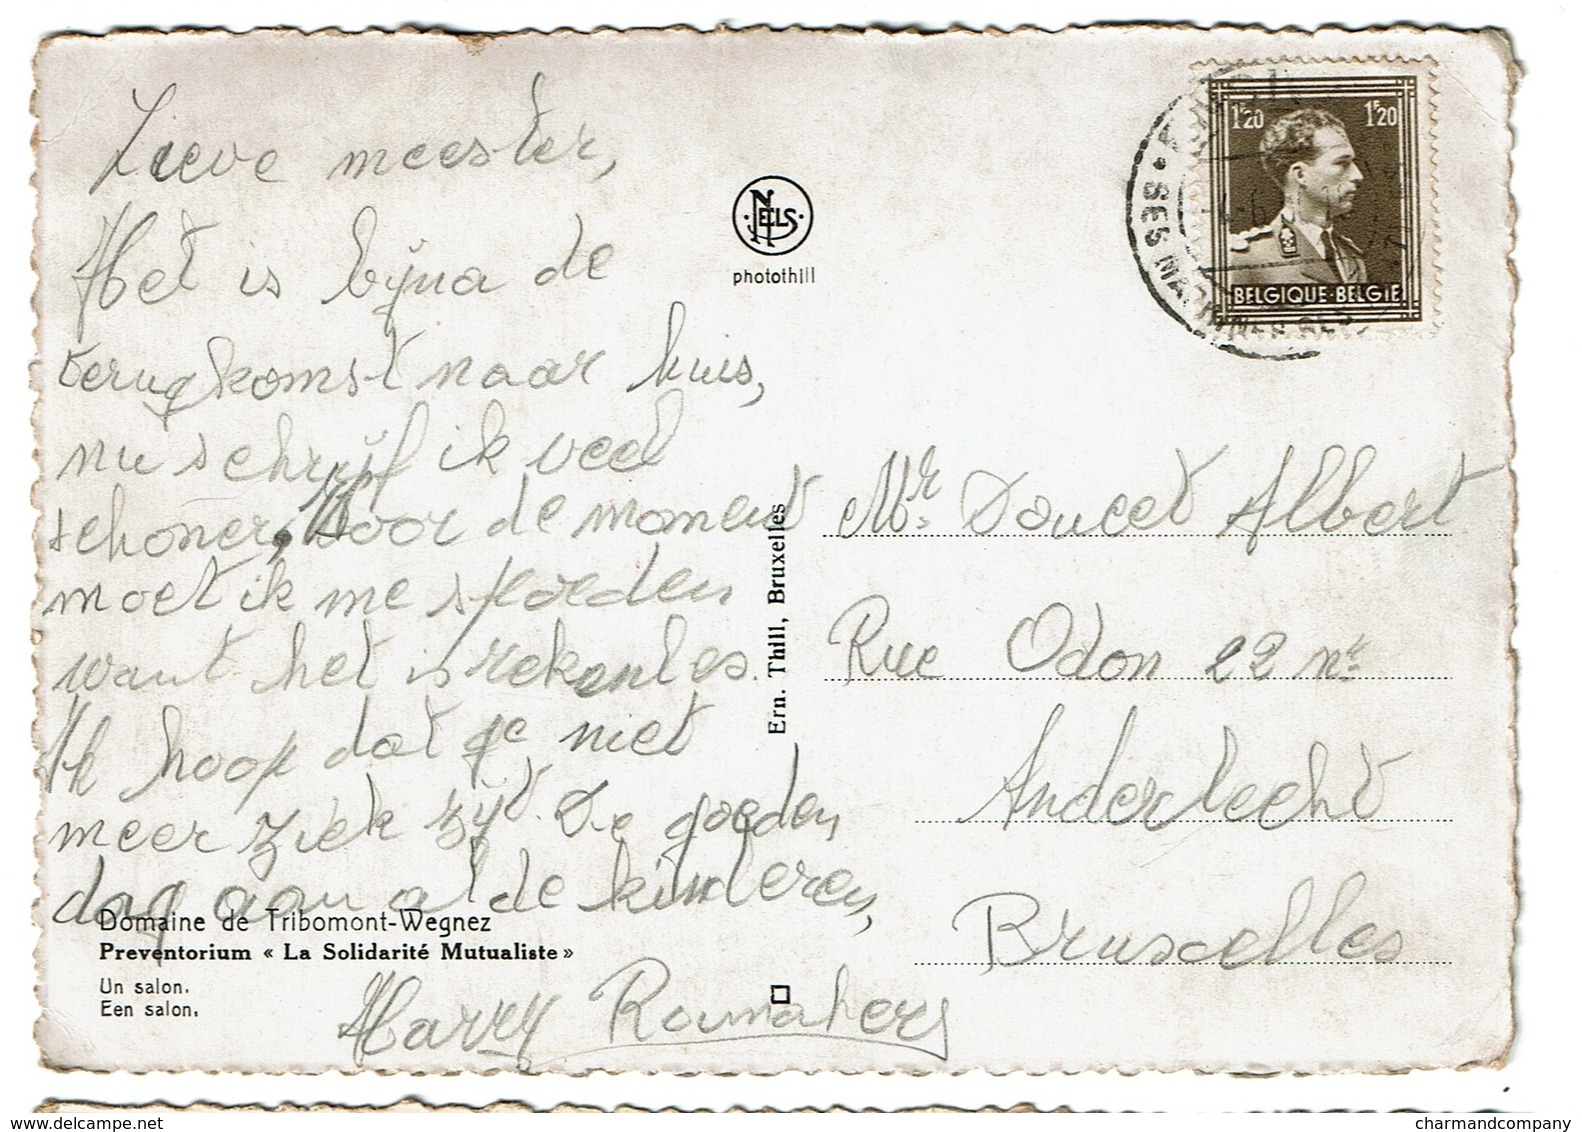 Lieve meester,
Het is bijna de
terugkomst naar huis,
nu schrijf ik veel
schoner, Voor de moment
moet ik me spoeden
want het is rekenles.
Ik hoop dat ge niet
meer ziek zijt. De goeden
dag aan al de kinderen,
Harry
NELS
photothill
Ern. Thill, Bruxelles
1F20 1F20
BELGIQUE-BELGIE
SES MA
Mr. Doucet Albert
Rue Odon 22 nr
Anderlecht
Bruxelles
Domaine de Tribomont-Wegnez
Preventorium « La Solidarité Mutualiste »
Un salon.
Een salon.
www.delcampe.net
charmandcompany